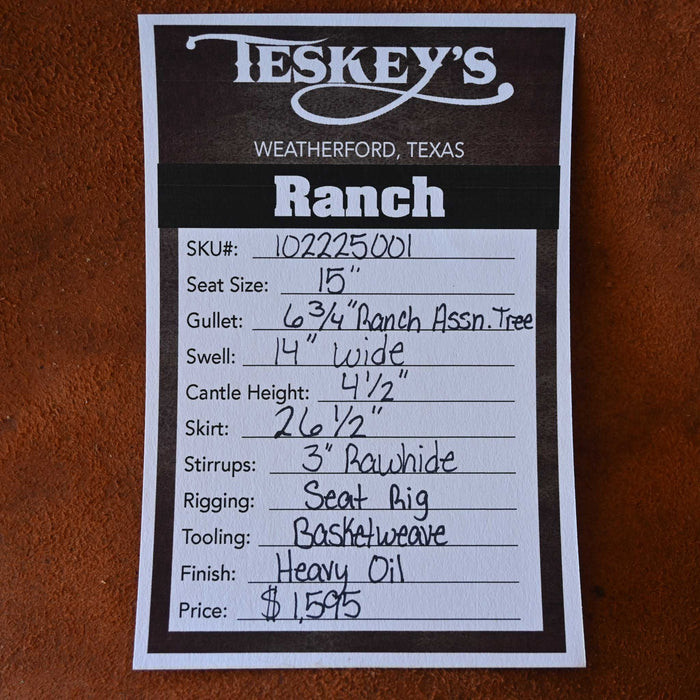 TESKEY'S
WEATHERFORD, TEXAS
Ranch
SKU#: 102225001
Seat Size: 15"
Gullet: 6 3/4" Ranch Assn. Tree
Swell: 14" wide
Cantle Height: 4 1/2"
Skirt: 26 1/2"
Stirrups: 3" Rawhide
Rigging: Seat Rig
Tooling: Basketweave
Finish: Heavy Oil
Price: $1,595